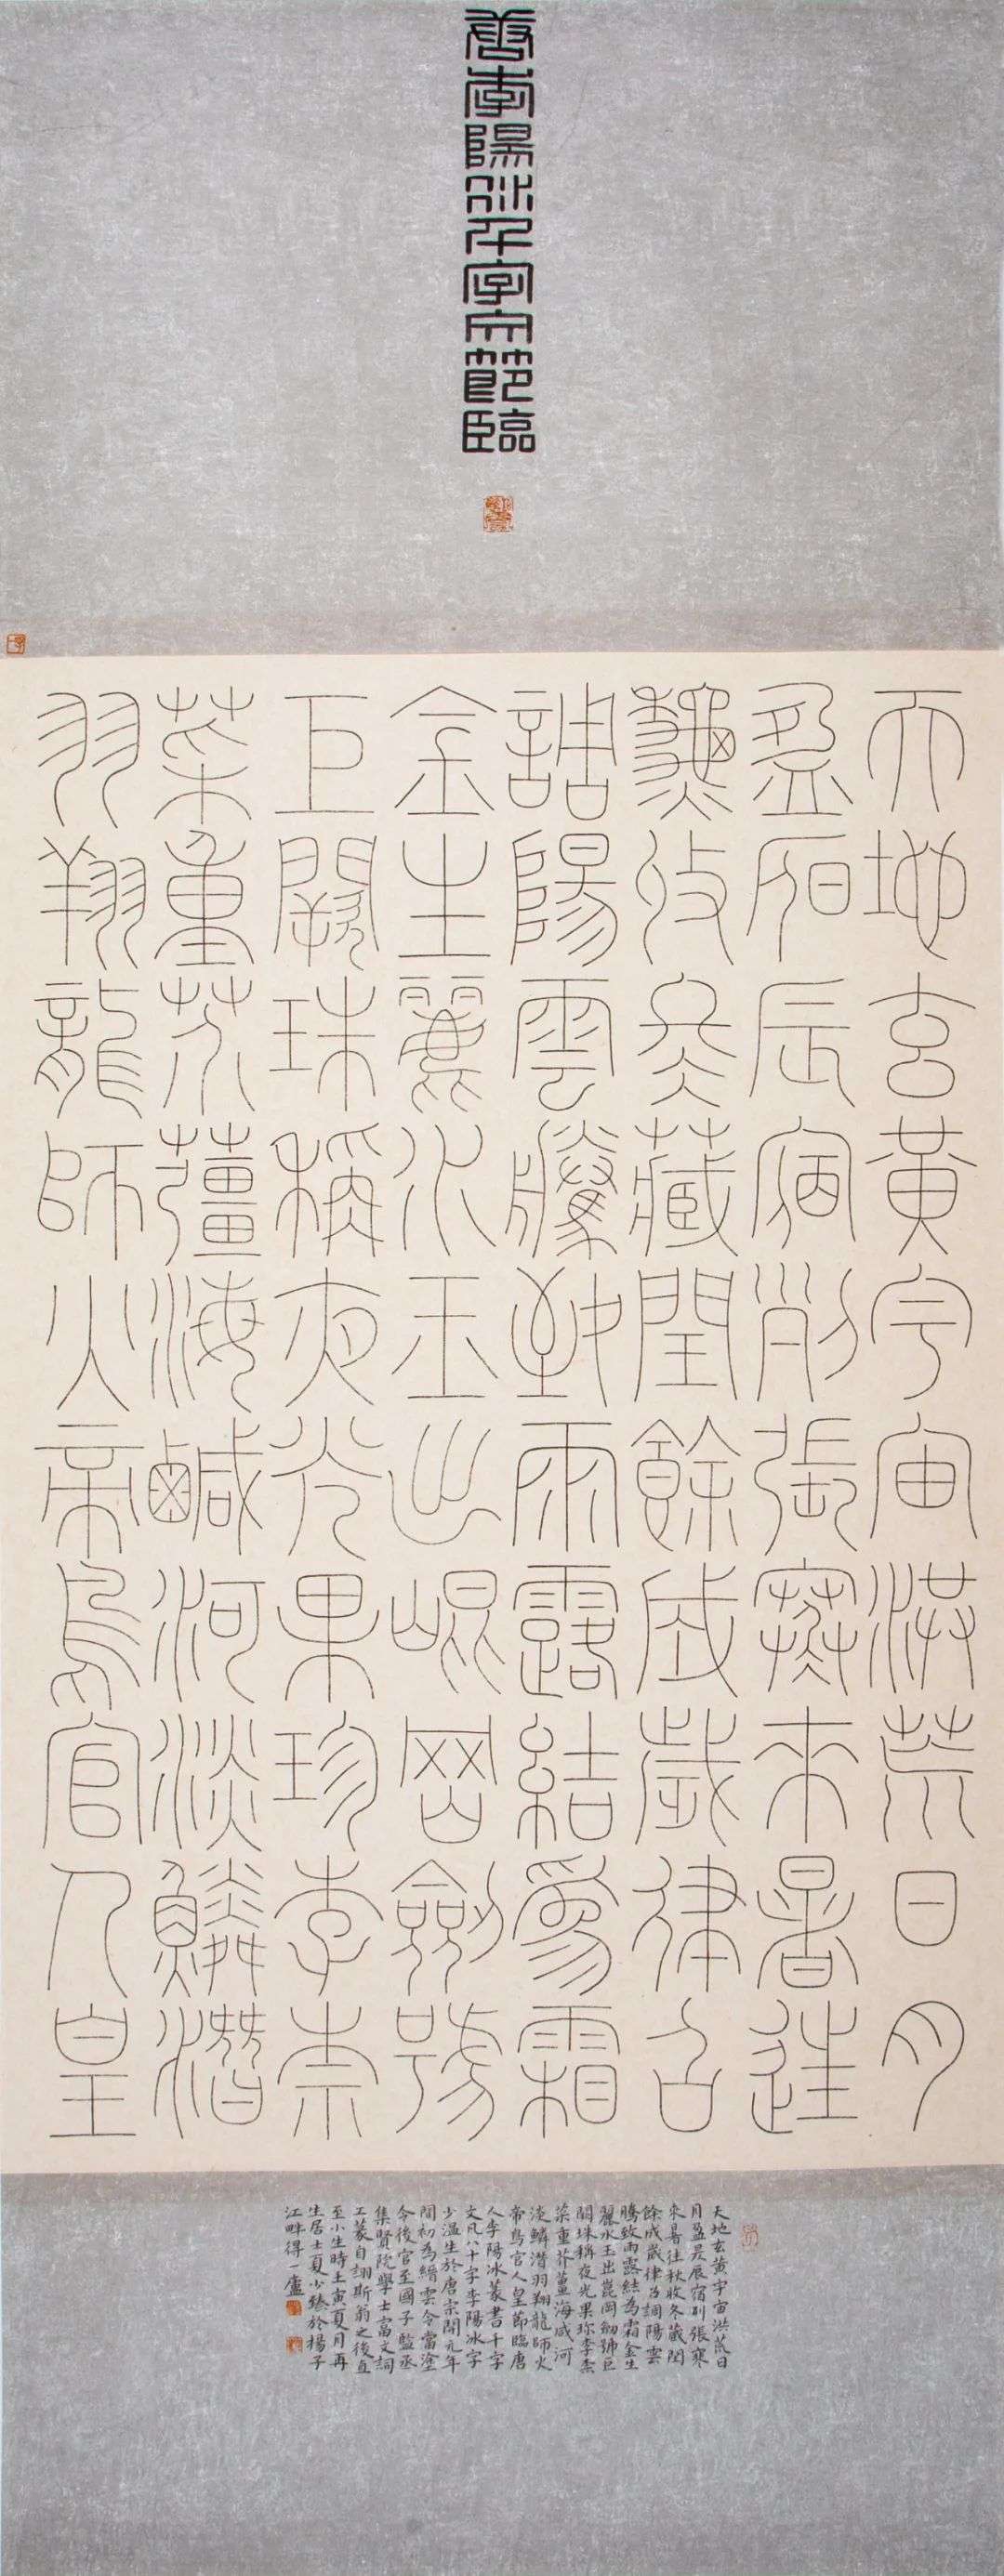 唐李陽冰千字文節臨
天地玄黃宇宙洪荒日月
盈昃辰宿列張寒來暑往
秋收冬藏閏餘成歲律召
調陽雲騰致雨露結為霜
金生麗水玉出崑岡劍號
巨闕珠稱夜光果珍李柰
菜重芥薑海鹹河淡鱗潛
羽翔龍師火帝鳥官人皇
天地玄黃宇宙洪荒日
月盈昃辰宿列張寒
來暑往秋收冬藏閏
餘成歲律召調陽雲
騰致雨露結為霜金生
麗水玉出崑岡劍號巨
闕珠稱夜光果珍李柰
菜重芥薑海咸河
淡鱗潛羽翔龍師火
帝鳥官人皇節臨唐
人李陽冰篆書千字
文凡八十字李陽冰字
少溫生於唐宗開元年
間初為縉雲令當塗
令後官至國子監丞
集賢院學士富文詞
工篆自詡斯翁之後直
至小生時壬寅夏月再
生居士夏少臻於揚子
江畔得一廬